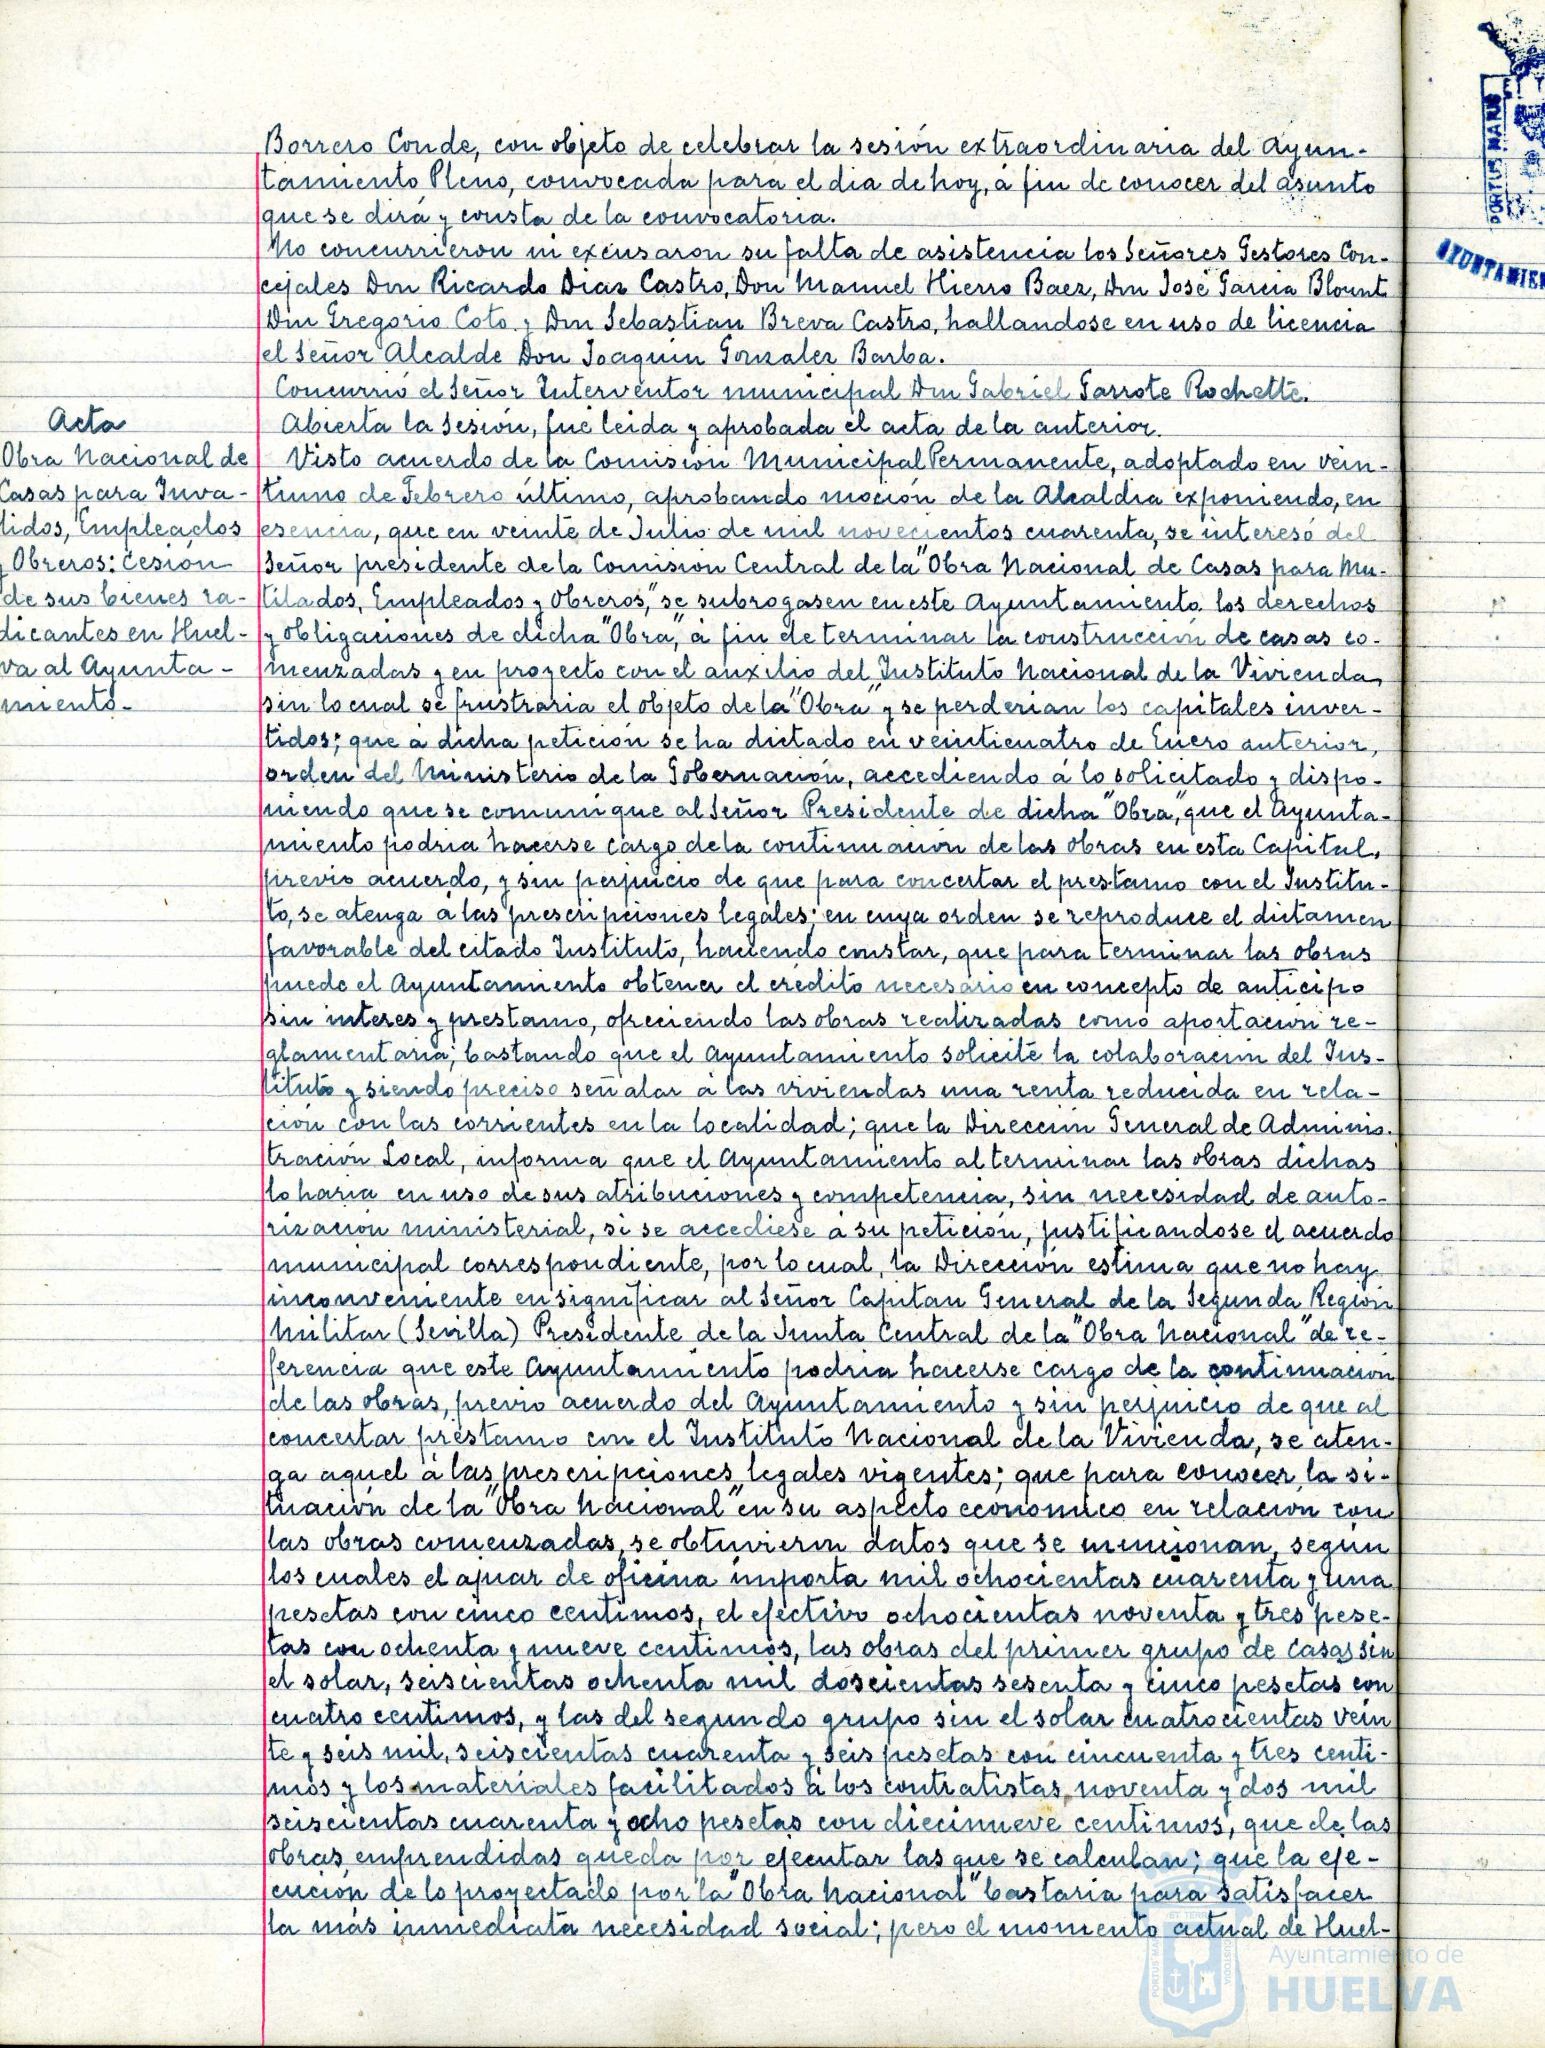 Borrero Conde, con objeto de celebrar la sesión extraordinaria del Ayun-
tamiento Pleno, convocada para el dia de hoy, á fin de conocer del asunto
que se dirá y consta de la convocatoria.
No concurrieron ni excusaron su falta de asistencia los Señores Gestores Con-
cejales Don Ricardo Diaz Castro, Don Manuel Hierro Baez, Don José Garcia Blount
Don Gregorio Coto y Don Sebastian Breva Castro, hallandose en uso de licencia
el Señor Alcalde Don Joaquin Gonzalez Barba.
Concurrió el Señor Interventor municipal Don Gabriel Garrote Rochette.
Acta
Abierta la sesión, fue leida y aprobada el acta de la anterior.
Obra Nacional de
Casas para Inva-
lidos, Empleados
y Obreros: cesión
de sus bienes ra-
dicantes en Huel-
va al Ayunta-
miento.-
Visto acuerdo de la Comisión Municipal Permanente, adoptado en vein-
tiuno de Febrero último, aprobando moción de la Alcaldia exponiendo, en
esencia, que en veinte de Julio de mil novecientos cuarenta, se interesó del
Señor presidente de la Comisión Central de la "Obra Nacional de Casas para Mu-
tilados, Empleados y Obreros," se subrogasen en este Ayuntamiento los derechos
y obligaciones de dicha "Obra," á fin de terminar la construcción de casas co-
menzadas y en proyecto con el auxilio del Instituto Nacional de la Vivienda,
sin lo cual se frustraria el objeto de la "Obra" y se perderian los capitales inver-
tidos; que á dicha petición se ha dictado en veinticuatro de Enero anterior,
orden del Ministerio de la Gobernación, accediendo á lo solicitado y dispo-
niendo que se comunique al Señor Presidente de dicha "Obra," que el Ayunta-
miento podria hacerse cargo de la continuación de las obras en esta Capital,
previo acuerdo, y sin perjuicio de que para concertar el prestamo con el Institu-
to, se atenga á las prescripciones legales; en cuya orden se reproduce el dictamen
favorable del citado Instituto, haciendo constar, que para terminar las obras
puede el Ayuntamiento obtener el crédito necesario en concepto de anticipo
sin interes y prestamo, ofreciendo las obras realizadas como aportación re-
glamentaria; bastando que el Ayuntamiento solicite la colaboración del Ins-
tituto y siendo preciso señalar á las viviendas una renta reducida en rela-
ción con las corrientes en la localidad; que la Dirección General de Adminis-
tración Local, informa que el Ayuntamiento al terminar las obras dichas
lo haria en uso de sus atribuciones y competencia, sin necesidad de auto-
rización ministerial, si se accediese á su petición, justificandose el acuerdo
municipal correspondiente, por lo cual, la Dirección estima que no hay
inconveniente en significar al Señor Capitan General de la Segunda Region
Militar (Sevilla) Presidente de la Junta Central de la "Obra Nacional" de re-
ferencia que este Ayuntamiento podria hacerse cargo de la continuación
de las obras, previo acuerdo del Ayuntamiento y sin perjuicio de que al
concertar préstamo con el Instituto Nacional de la Vivienda, se aten-
ga aquel á las prescripciones legales vigentes; que para conocer la si-
tuación de la "Obra Nacional" en su aspecto económico en relacion con
las obras comenzadas, se obtuvieron datos que se mencionan, segun
los cuales el ajuar de oficina importa mil ochocientas cuarenta y una
pesetas con cinco centimos, el efectivo ochocientas noventa y tres pese-
tas con ochenta y nueve centimos, las obras del primer grupo de casas sin
el solar, seiscientas ochenta mil doscientas sesenta y cinco pesetas con
cuatro centimos, y las del segundo grupo sin el solar cuatrocientas vein
te y seis mil, seiscientas cuarenta y seis pesetas con cincuenta y tres centi-
mos y los materiales facilitados á los contratistas, noventa y dos mil
seiscientas cuarenta y ocho pesetas con diecinueve centimos, que de las
obras emprendidas queda por ejecutar las que se calculan; que la eje-
cución de lo proyectado por la "Obra Nacional" bastaria para satisfacer
la más inmediata necesidad social; pero el momento actual de Huel-
PORTUS MARIS
Ayuntamiento de
HUELVA